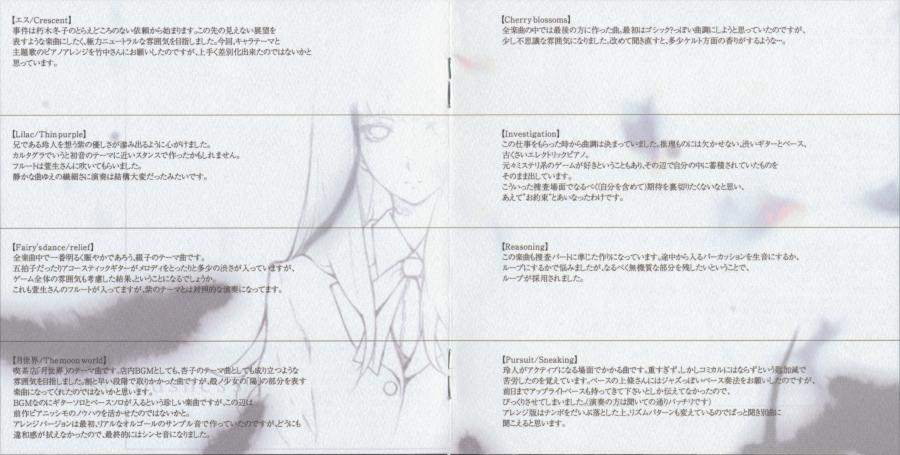 【エス/Crescent】
事件は朽木冬子のとらえどころのない依頼から始まります。この先の見えない展望を
表すような楽曲にしたく、極力ニュートラルな雰囲気を目指しました。今回、キャラテーマと
主題歌のピアノアレンジを竹中さんにお願いしたのですが、上手く差別化出来たのではないかと
思っています。
【Lilac/Thin purple】
兄である玲人を想う紫の優しさが滲み出るように心がけました。
カルタグラでいうと初音のテーマに近いスタンスで作ったかもしれません。
フルートは萱生さんに吹いてもらいました。
静かな曲ゆえの繊細さに演奏は結構大変だったみたいです。
【Fairy's dance/relief】
全楽曲中で一番明るく賑やかであろう、綴子のテーマ曲です。
五拍子だったりアコースティックギターがメロディをとったりと多少の渋さが入っていますが、
ゲーム全体の雰囲気も考慮した結果、ということになるでしょうか。
これも萱生さんのフルートが入ってますが、紫のテーマとは対照的な演奏になってます。
【月世界/The moon world】
喫茶店「月世界」のテーマ曲です。店内BGMとしても、杏子のテーマ曲としても成り立つような
雰囲気を目指しました。割と早い段階で取りかかった曲ですが、殻ノ少女の「陽」の部分を表す
楽曲になってくれたのではないかと思います。
BGMなのにギターソロとベースソロが入るという珍しい楽曲ですが、この辺は
前作ピアニッシモのノウハウを活かせたのではないかと。
アレンジバージョンは最初、リアルなオルゴールのサンプル音で作っていたのですが、どうにも
違和感が拭えなかったので、最終的にはシンセ音になりました。
【Cherry blossoms】
全楽曲の中では最後の方に作った曲。最初はゴシックァっぽい曲調にしようと思っていたのですが、
少し不思議な雰囲気になりました。改めて聞き直すと、多少ケルト方面の香りがするような…。
【Investigation】
この仕事をもらった時から曲調は決まっていました。推理ものには欠かせない、渋いギターとベース、
古くさいエレクトリックピアノ。
元々ミステリ系のゲームが好きということもあり、その辺で自分の中に蓄積されていたものを
そのまま出しています。
こういった捜査場面でなるべく(自分を含めて)期待を裏切りたくないなと思い、
あえて"お約束"とあいなったわけです。
【Reasoning】
この楽曲も捜査パートに準じた作りになっています。途中から入るパーカッションを生音にするか、
ループにするかで悩みましたが、なるべく無機質な部分を残したいということで、
ループが採用されました。
【Pursuit/Sneaking】
玲人がアクティブになる場面でかかる曲です。重すぎず、しかしコミカルにはならずという匙加減で
苦労したのを覚えています。ベースの上條さんにはジャズっぽいベース奏法をお願いしたのですが、
前日までアップライトベースも持ってきて下さいとしか伝えてなかったので、
びっくりさせてしまいました。(演奏の方は聞いての通りバッチリです)
アレンジ版はテンポをだいぶ落とした上、リズムパターンも変えているのでぱっと聞き別曲に
聞こえると思います。